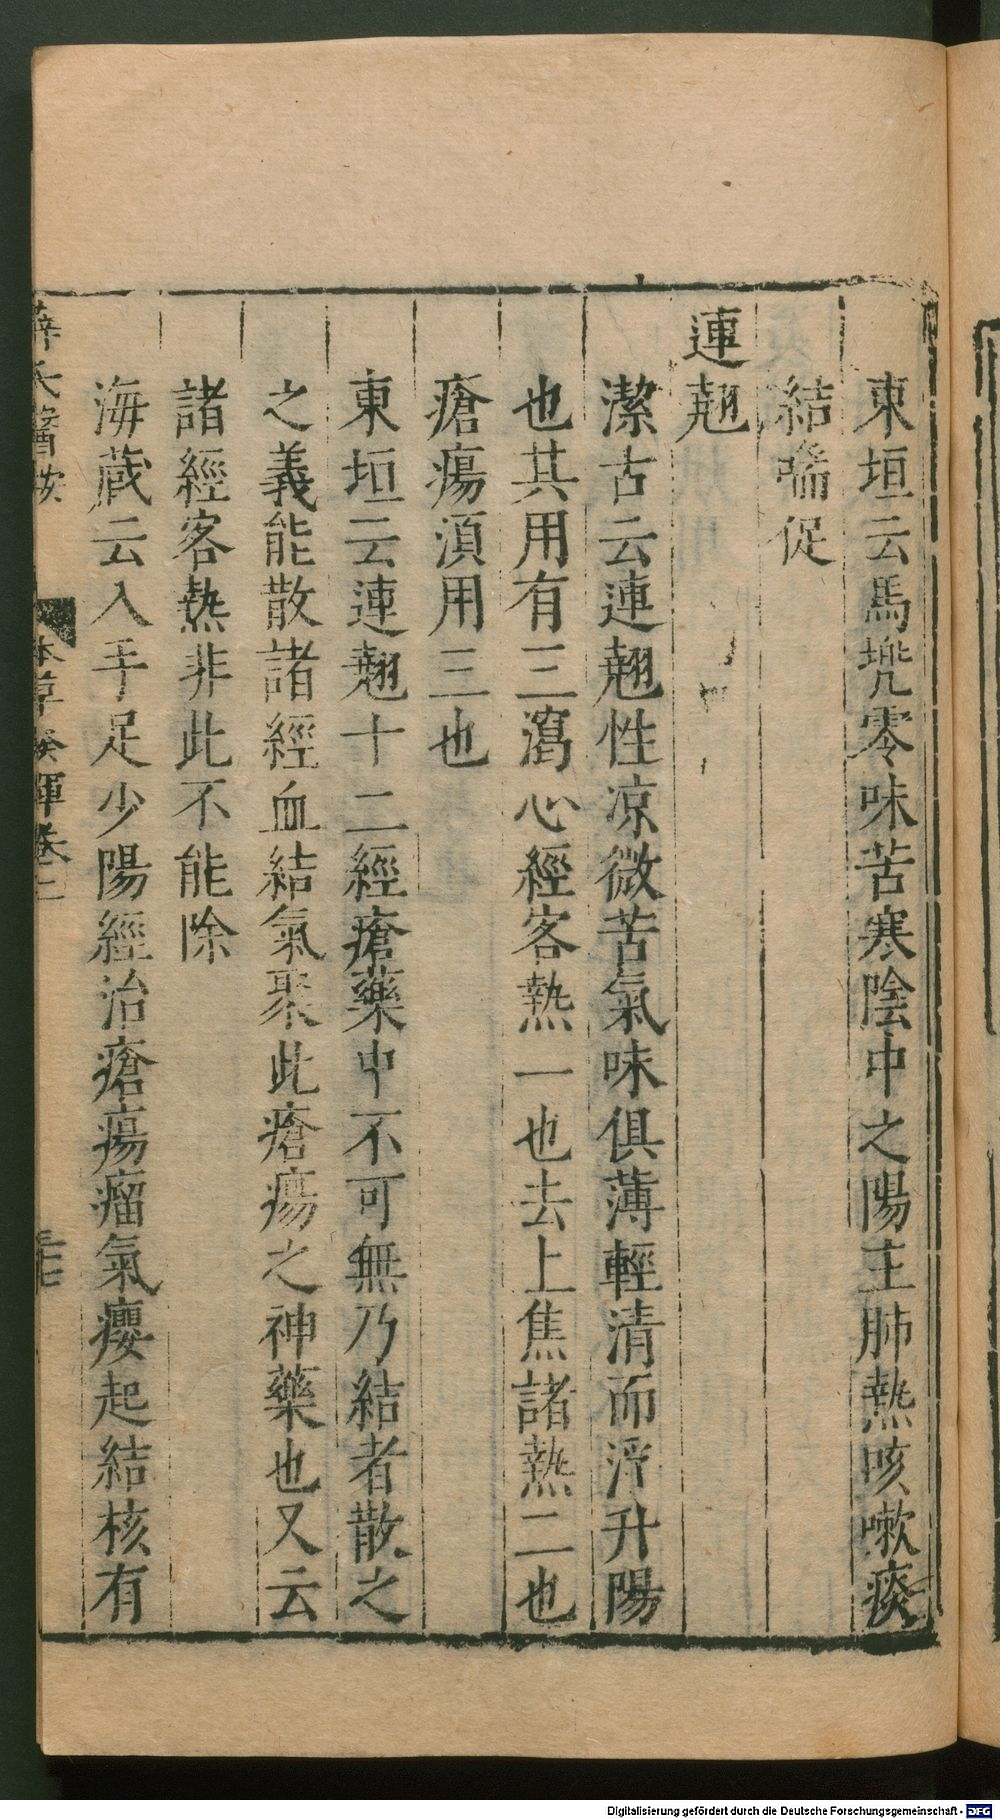 東垣云馬兠零味苦寒陰中之陽主肺熱咳嗽痰
結喘促
連翹
潔古云連翹性凉微苦氣味俱薄輕清而浮升陽
也其用有三瀉心經客熱一也去上焦諸熱二也
瘡瘍湏用三也
東垣云連翹十二經瘡藥中不可無乃結者散之
之義能散諸經血結氣聚此瘡瘍之神藥也又云
諸經客熱非此不能除
海藏云入手足少陽經治瘡瘍瘤氣癭起結核有
薛氏醫按 本草發揮卷二
Digitalisierung gefördert durch die Deutsche Forschungsgemeinschaft - DFG